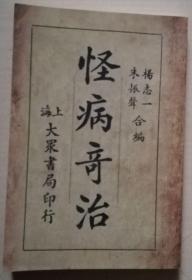 楊志一
朱振聲 合編
怪病奇治
上海大眾書局印行